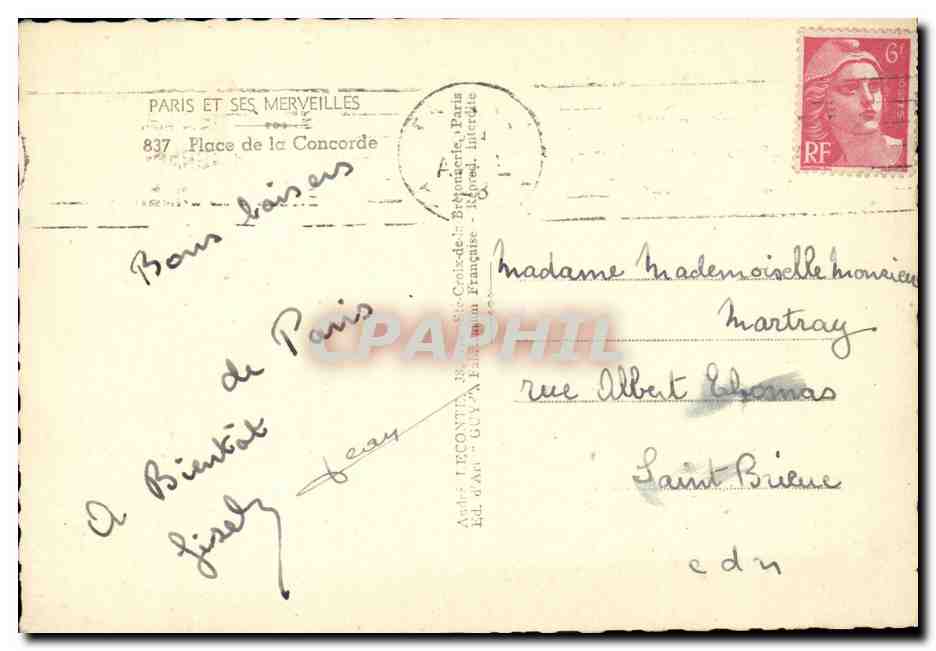 PARIS ET SES MERVEILLES
837 Place de la Concorde
Bons baisers
de Paris
A Bientôt
Gisel
Jean
Ste-Croix-de-la Bretonnerie, Paris
Ed. d'Art GUY Française - Reprod. interdite
André LECONTE, 38,
6F
RF
Madame Mademoiselle Monsieur
Martray
rue Albert Thomas
Saint Brieuc
cdn
CPAPHIL